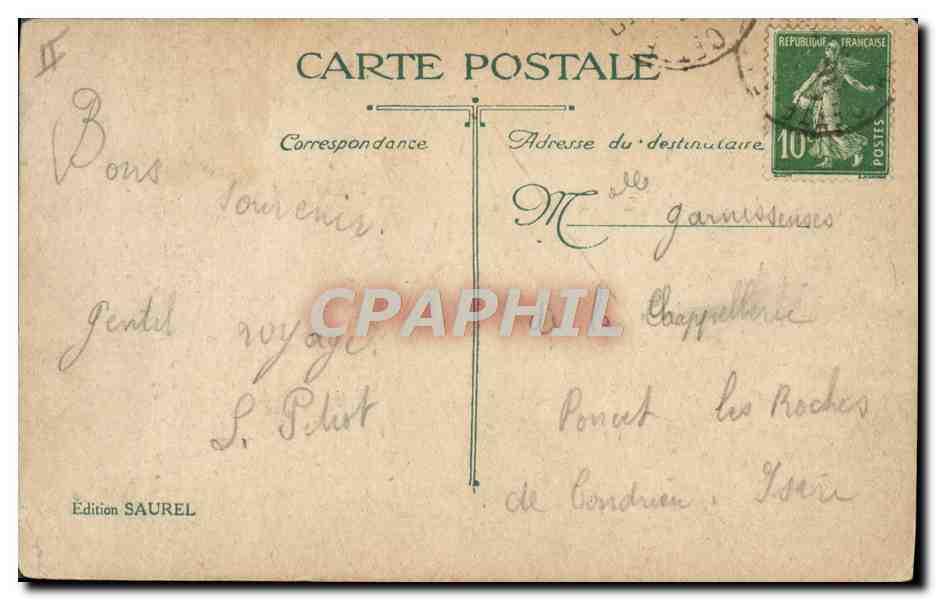 II
CARTE POSTALE
RÉPUBLIQUE FRANÇAISE
10
POSTES
Correspondance
Adresse du destinataire
Bons
souvenir.
Gentil voyage.
Édition SAUREL
Mlle garnisseuses
de la Chappellerie
Poncet les Roches
de Condrieu. Isère
CPAPHIL